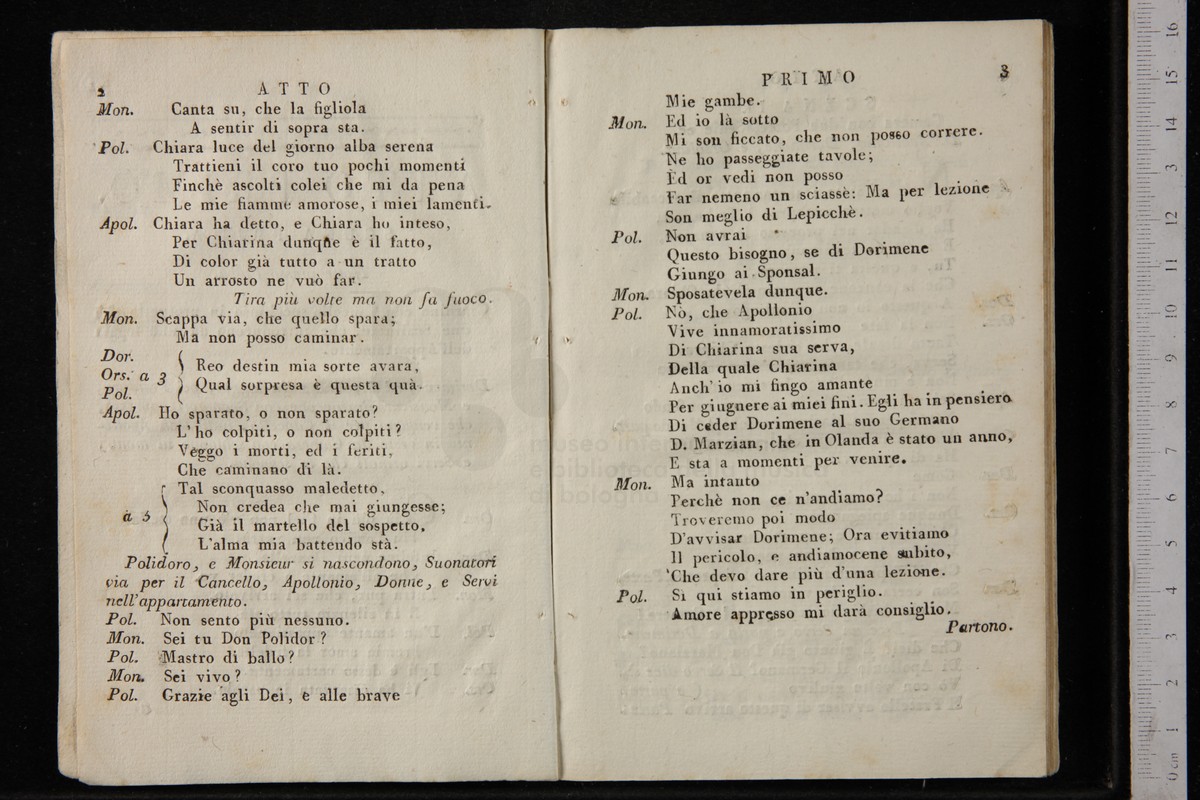 2 ATTO
Mon. Canta su, che la figliola
A sentir di sopra sta.
Pol. Chiara luce del giorno alba serena
Trattieni il coro tuo pochi momenti
Finchè ascolti colei che mi da pena
Le mie fiamme amorose, i miei lamenti.
Apol. Chiara ha detto, e Chiara ho inteso,
Per Chiarina dunque è il fatto,
Di color già tutto a un tratto
Un arrosto ne vuò far.
Tira più volte ma non fa fuoco.
Mon. Scappa via, che quello spara;
Ma non posso caminar.
Dor.
Ors. a 3 Reo destin mia sorte avara,
Pol. Qual sorpresa è questa quà.
Apol. Ho sparato, o non sparato?
L'ho colpiti, o non colpiti?
Veggo i morti, ed i feriti,
Che caminano di là.
Tal sconquasso maledetto,
à 5 Non credea che mai giungesse;
Già il martello del sospetto,
L'alma mia battendo stà.
Polidoro, e Monsieur si nascondono, Suonatori
via per il Cancello, Apollonio, Donne, e Servi
nell'appartamento.
Pol. Non sento più nessuno.
Mon. Sei tu Don Polidor?
Pol. Mastro di ballo?
Mon. Sei vivo?
Pol. Grazie agli Dei, e alle brave
PRIMO 3
Mie gambe.
Mon. Ed io là sotto
Mi son ficcato, che non posso correre.
Ne ho passeggiate tavole;
Ed or vedi non posso
Far nemeno un sciassè: Ma per lezione
Son meglio di Lepicchè.
Pol. Non avrai
Questo bisogno, se di Dorimene
Giungo ai Sponsal.
Mon. Sposatevela dunque.
Pol. Nò, che Apollonio
Vive innamoratissimo
Di Chiarina sua serva,
Della quale Chiarina
Anch' io mi fingo amante
Per giugnere ai miei fini. Egli ha in pensiero
Di ceder Dorimene al suo Germano
D. Marzian, che in Olanda è stato un anno,
E sta a momenti per venire.
Mon. Ma intanto
Perchè non ce n'andiamo?
Troveremo poi modo
D'avvisar Dorimene; Ora evitiamo
Il pericolo, e andiamocene subito,
Che devo dare più d'una lezione.
Pol. Si qui stiamo in periglio.
Amore appresso mi darà consiglio.
Partono.